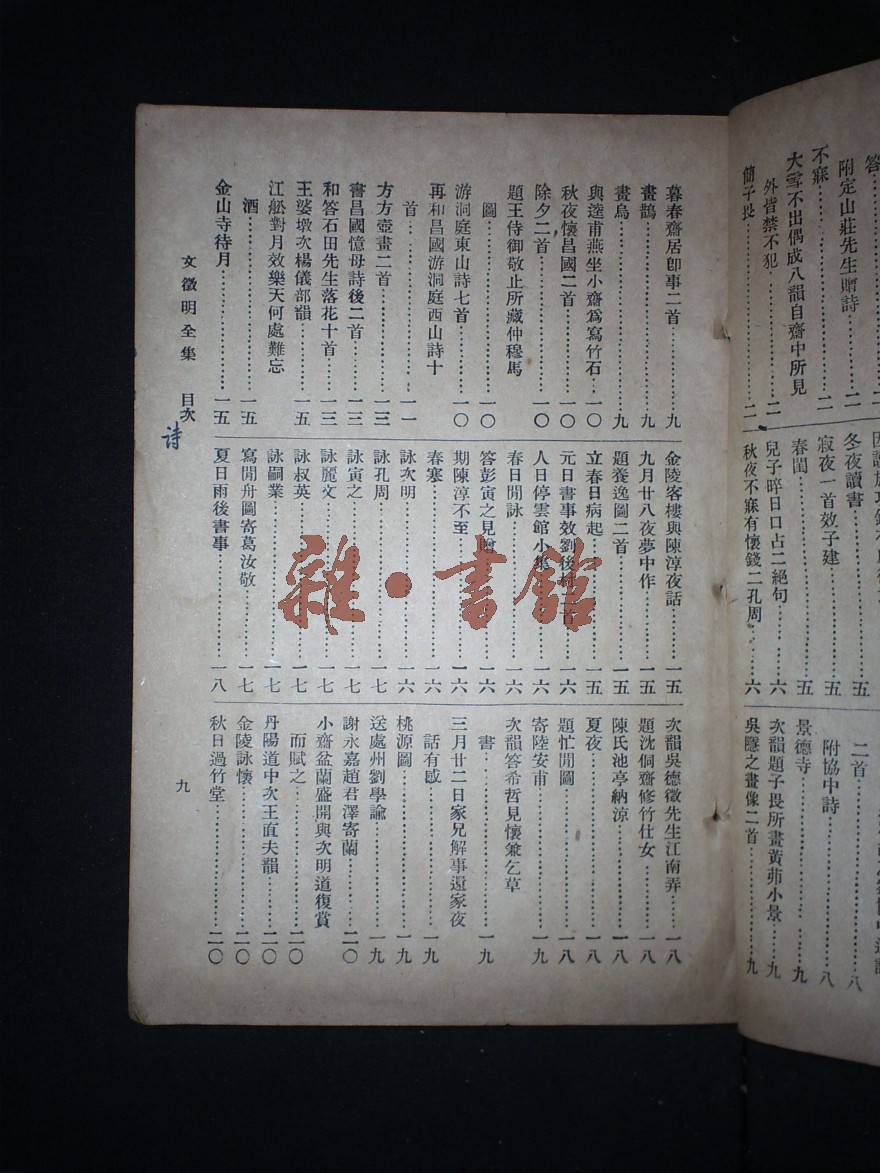 答……
附定山莊先生贈詩……二
不寐……二
大雪不出偶成八韻自齋中所見
外皆禁不犯……二
簡子畏……二
冬夜讀書……五
寂夜一首效子建……五
春閨……五
兒子晬日口占二絕句……六
秋夜不寐有懷錢二孔周……六
二首……八
附協中詩……八
景德寺……九
次韻題子畏所畫黃茆小景……九
吳隱之畫像二首……九
暮春齋居卽事二首……九
畫鵲……九
畫烏……九
與逵甫燕坐小齋爲寫竹石…一〇
秋夜懷昌國二首……一〇
除夕二首……一〇
題王侍御敬止所藏仲穆馬
圖……一〇
游洞庭東山詩七首……一〇
再和昌國游洞庭西山詩十
首……一一
方方壺畫二首……一三
書昌國憶母詩後二首……一三
和答石田先生落花十首……一三
王婆墩次楊儀部韻……一五
江舩對月效樂天何處難忘
酒……一五
金山寺待月……一五
金陵客樓與陳淳夜話……一五
九月廿八夜夢中作……一五
題養逸圖二首……一五
立春日病起……一五
元日書事效劉後村二首……一六
人日停雲館小集……一六
春日閒詠……一六
答彭寅之見贈……一六
期陳淳不至……一六
春寒……一六
詠次明……一六
詠孔周……一七
詠寅之……一七
詠麗文……一七
詠叔英……一七
詠嗣業……一七
寫閒舟圖寄葛汝敬……一七
夏日雨後書事……一八
次韻吳德徵先生江南弄……一八
題沈侗齋修竹仕女……一八
陳氏池亭納涼……一八
夏夜……一八
題忙閒圖……一八
寄陸安甫……一九
次韻答希哲見懷兼乞草
書……一九
三月廿二日家兄解事還家夜
話有感……一九
桃源圖……一九
送處州劉學諭……一九
謝永嘉趙君澤寄蘭……二〇
小齋盆蘭盛開與次明道復賞
而賦之……二〇
丹陽道中次王直夫韻……二〇
金陵詠懷……二〇
秋日過竹堂……二〇
文徵明全集 目次
詩
九
雜·書館